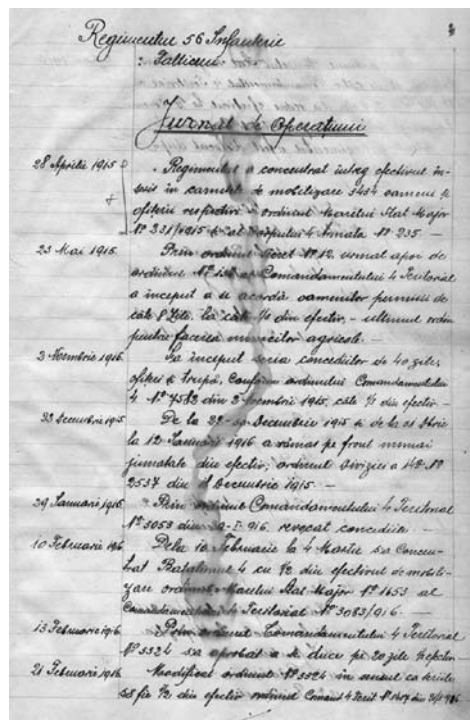 Regimentul 56 Infanterie
Fălticeni
Jurnal de Operatiuni
28 Aprilie 1915 Regimentul a concentrat întreg efectivul în-
scris în carnetele de mobilizare 3434 oameni și
ofițerii respectivi ordinul Marelui Stat Major
Nº 331/1915 și al Corpului 4 Armata Nº 235. —
23 Mai 1915. Prin ordinul Nº 12, urmat apoi de
ordinul Nº al Comandamentului 4 Teritorial
a început a se acordà oamenilor permisii de
câte 8 zile, la câte din efectiv, — ultimul ordin
pentru facerea muncilor agricole. —
2 Noembrie 1915. S'a început seria concediilor de 40 zile,
ofițeri și trupă, conform ordinului Comandamentului
4 Nº 7582 din 2 Noembrie 1915, câte din efectiv —
De la 22 Decembrie 1915 și de la
la 12 Ianuarie 1916 a rămas pe front numai
jumatate din efectiv, ordinul Diviziei a 14ª Nº
2537 din Decembrie 1915. —
29 Ianuarie 1915. Prin ordinul Comandamentului 4 Teritorial
Nº 3053 din 916, revocat concediile. —
10 Februarie 916 Dela 10 Februarie la 4 Martie s'a Concen-
trat Batalionul 4 cu 1/2 din efectivul de mobili-
zare ordinul Marelui Stat Major Nº 1653 al
Comandamentului 4 Teritorial Nº 3083/916. —
13 Februarie 1916 Prin ordinul Comandamentului 4 Teritorial
Nº 3324 s'a aprobat a se duce pe 20 zile
21 Februarie 1916 Modificat ordinul Nº 3324 în sensul ca
să fie 1/2 din efectiv ordinul Comand 4 Terit Nº din